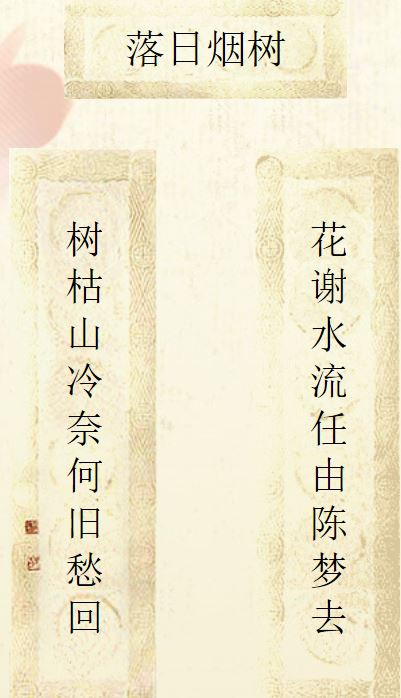 落日烟树
花谢水流任由陈梦去
树枯山冷奈何旧愁回